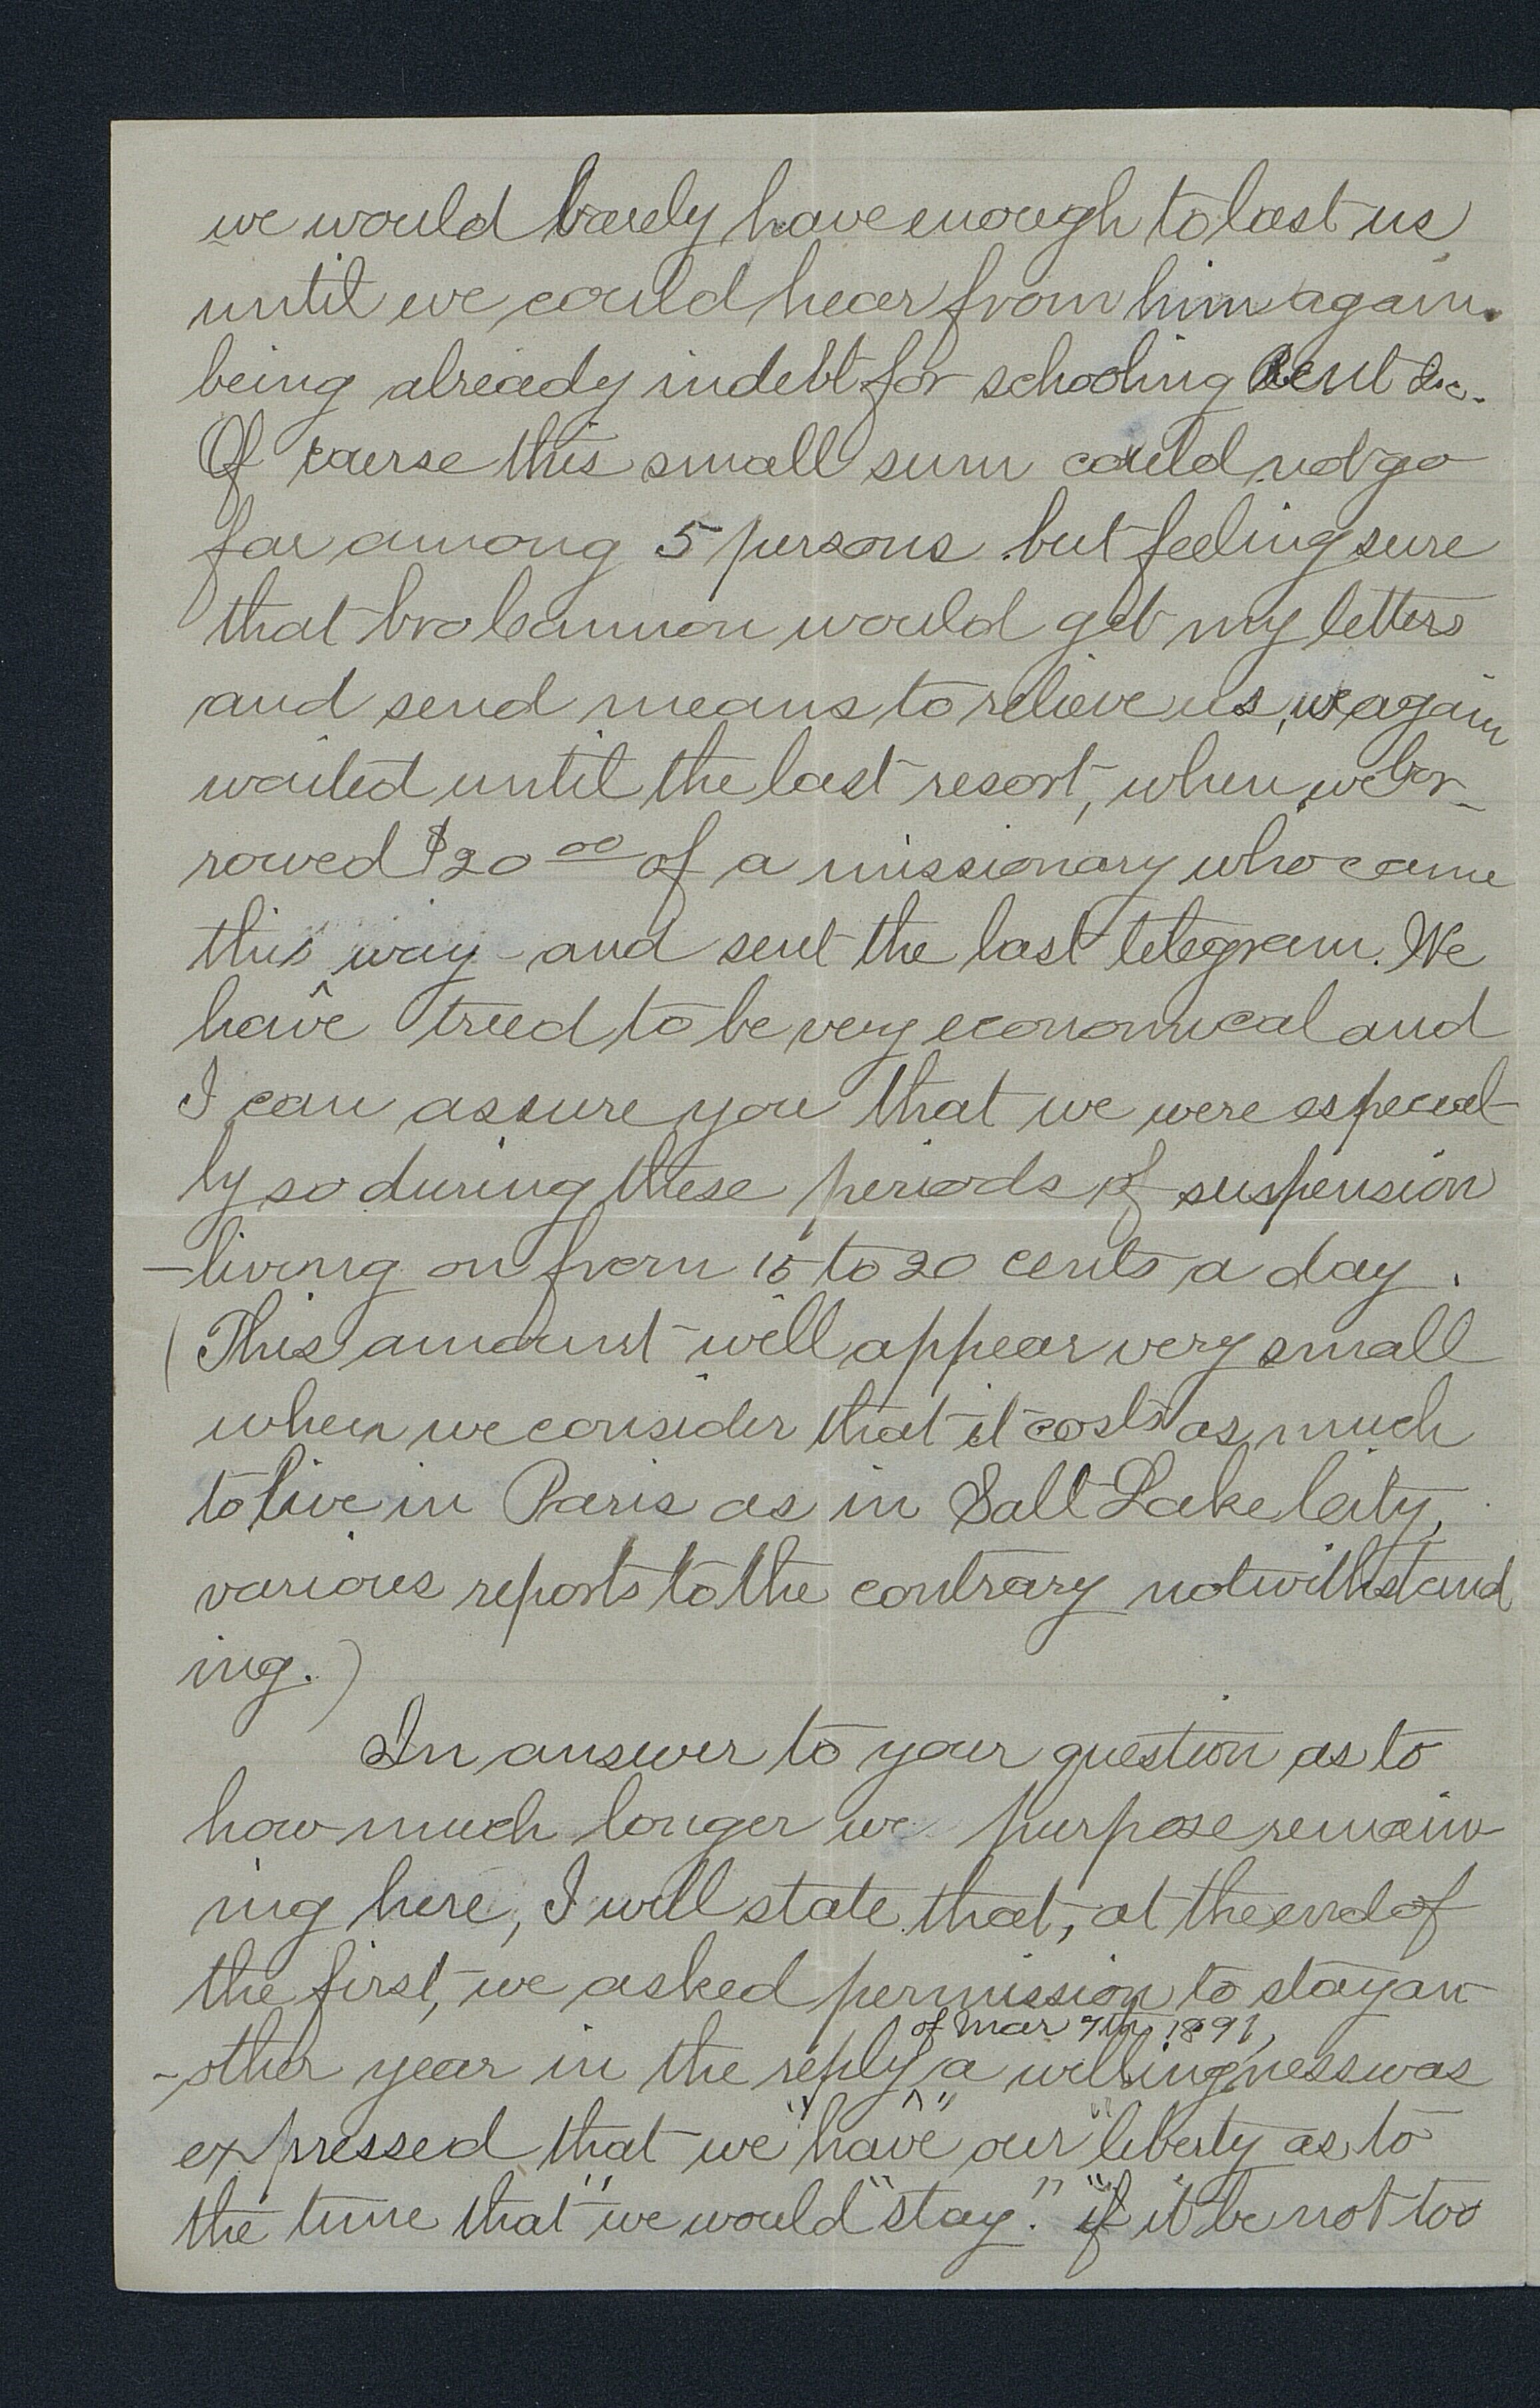 we would barely have enough to last us
until we could hear from him again.
being already in debt for schooling Rent &c.
Of course this small sum could not go
far among 5 persons but feeling sure
that bro Cannon would get my letters
and send means to relieve us, we again
waited until the last resort, when we bor-
rowed $20 00 of a missionary who came
this way - and sent the last telegram. We
have tried to be very economical and
I can assure you that we were especial
ly so during these periods of suspension
- living on from 15 to 20 cents a day.
(This amount will appear very small
when we consider that it costs as much
to live in Paris as in Salt Lake City,
various reports to the contrary notwithstand
ing.)
In answer to your question as to
how much longer we purpose remain
ing here, I will state that, at the end of
the first, we asked permission to stay an
of Mar 7th 1891,
-other year in the reply ^ a willingness was
expressed that we "have" our "liberty as to
the time that" we would "stay." "if it be not too